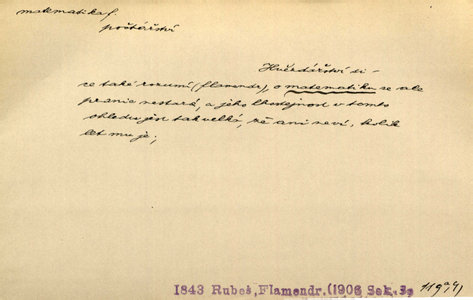 matematika f.
počtářství
Hvězdářství si -
ce také rozumí (flamendr), o matematiku se ale
pranic nestará, a jeho lhostejnost v tomto
ohledu jest tak velká, že ani neví, kolik
let mu je;
1843 Rubeš, Flamendr. (1906 Sek. 3